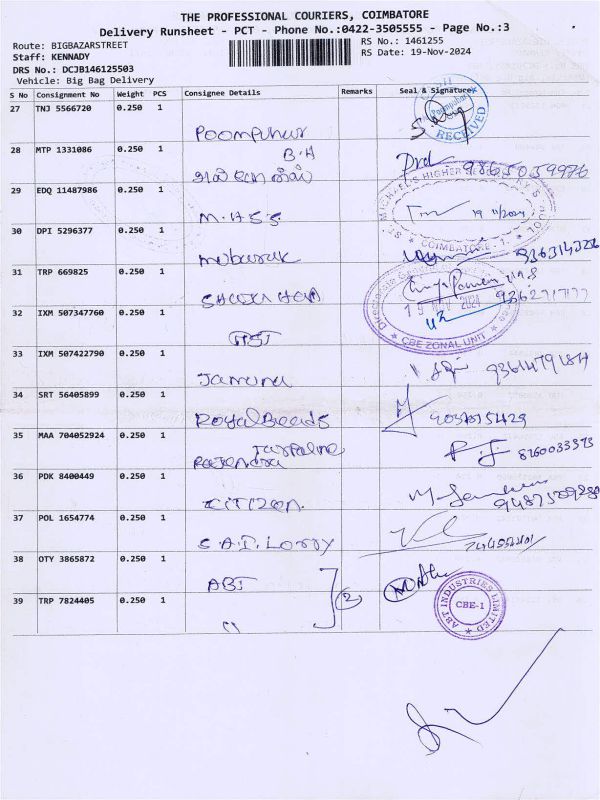 THE PROFESSIONAL COURIERS, COIMBATORE
Delivery Runsheet - PCT - Phone No.:0422-3505555 - Page No.:3
Route: BIGBAZARSTREET
RS No.: 1461255
Staff: KENNADY
RS Date: 19-Nov-2024
DRS No.: DCJB146125503
Vehicle: Big Bag Delivery
S No Consignment No Weight PCS Consignee Details Remarks Seal & Signature
27 TNJ 5566720 0.250 1
Poompuhur
RECEIVED
28 MTP 1331086 0.250 1
B.H
9865059976
29 EDQ 11487986 0.250 1
M.H.S.S
ST. MICHAEL'S HIGHER SECONDARY SCHOOL
19/11/2024
COIMBATORE - 1.
30 DPI 5296377 0.250 1
mubarak
31 TRP 669825 0.250 1
CBE ZONAL UNIT
32 IXM 507347760 0.250 1
GST
33 IXM 507422790 0.250 1
Jamuna
34 SRT 56405899 0.250 1
Royal Beads
35 MAA 704052924 0.250 1
Tarpaline
Rajendra
8760033373
36 PDK 8400449 0.250 1
CITIZON
37 POL 1654774 0.250 1
S.A.T. Lorry
38 OTY 3865872 0.250 1
ABT
2
39 TRP 7824405 0.250 1
"
ABT INDUSTRIES LIMITED
CBE-1